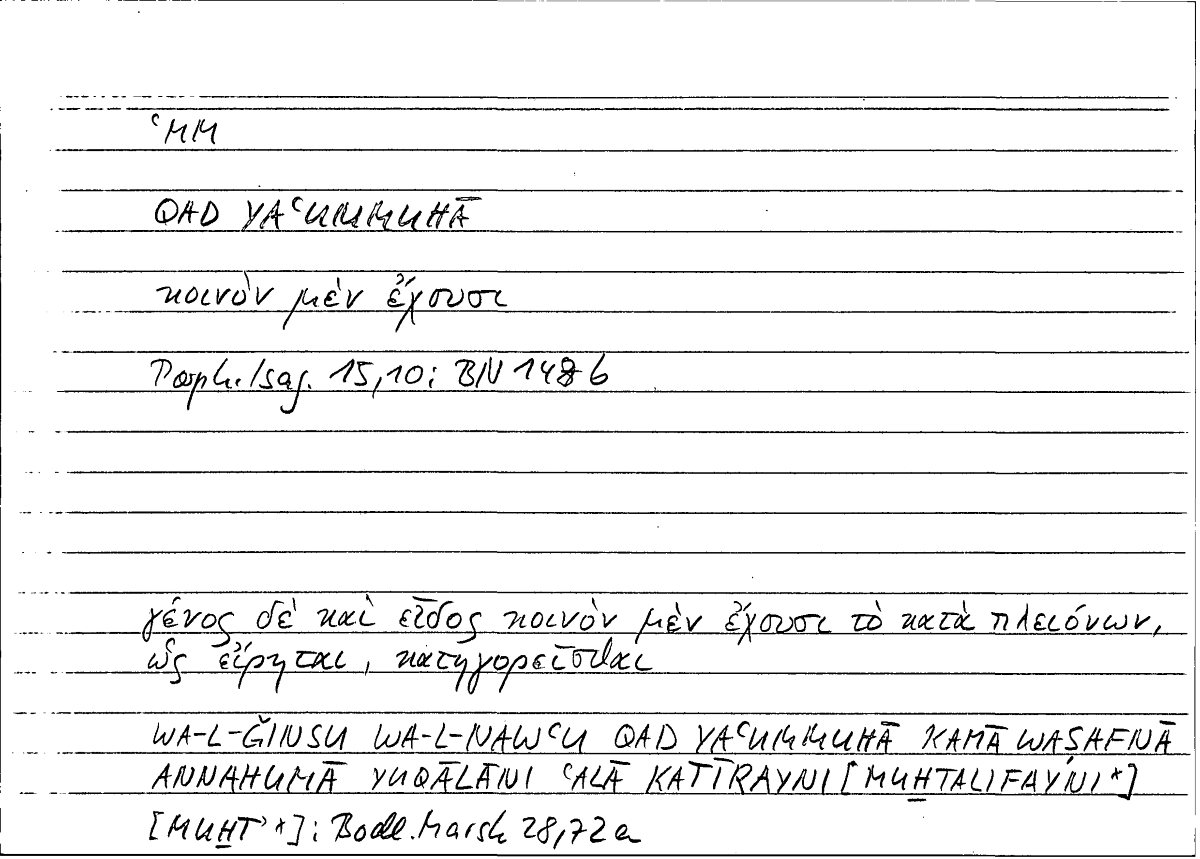 ʿMM
QAD YAʿUMMUHĀ
κοινὸν μὲν ἔχουσι
Porph. Isag. 15,10; BN 148 b
γένος δὲ καὶ εἶδος κοινὸν μὲν ἔχουσι τὸ κατὰ πλειόνων,
ὡς εἴρηται, κατηγορεῖσθαι
WA-L-ǦINSU WA-L-NAWʿU QAD YAʿUMMUHĀ KAMĀ WAṢAFNĀ
ANNAHUMĀ YUQĀLĀNI ʿALĀ KATĪRAYNI [MUḪTALIFAYNI*]
[MUḪT’*]: Bodl. Marsh 28,72a